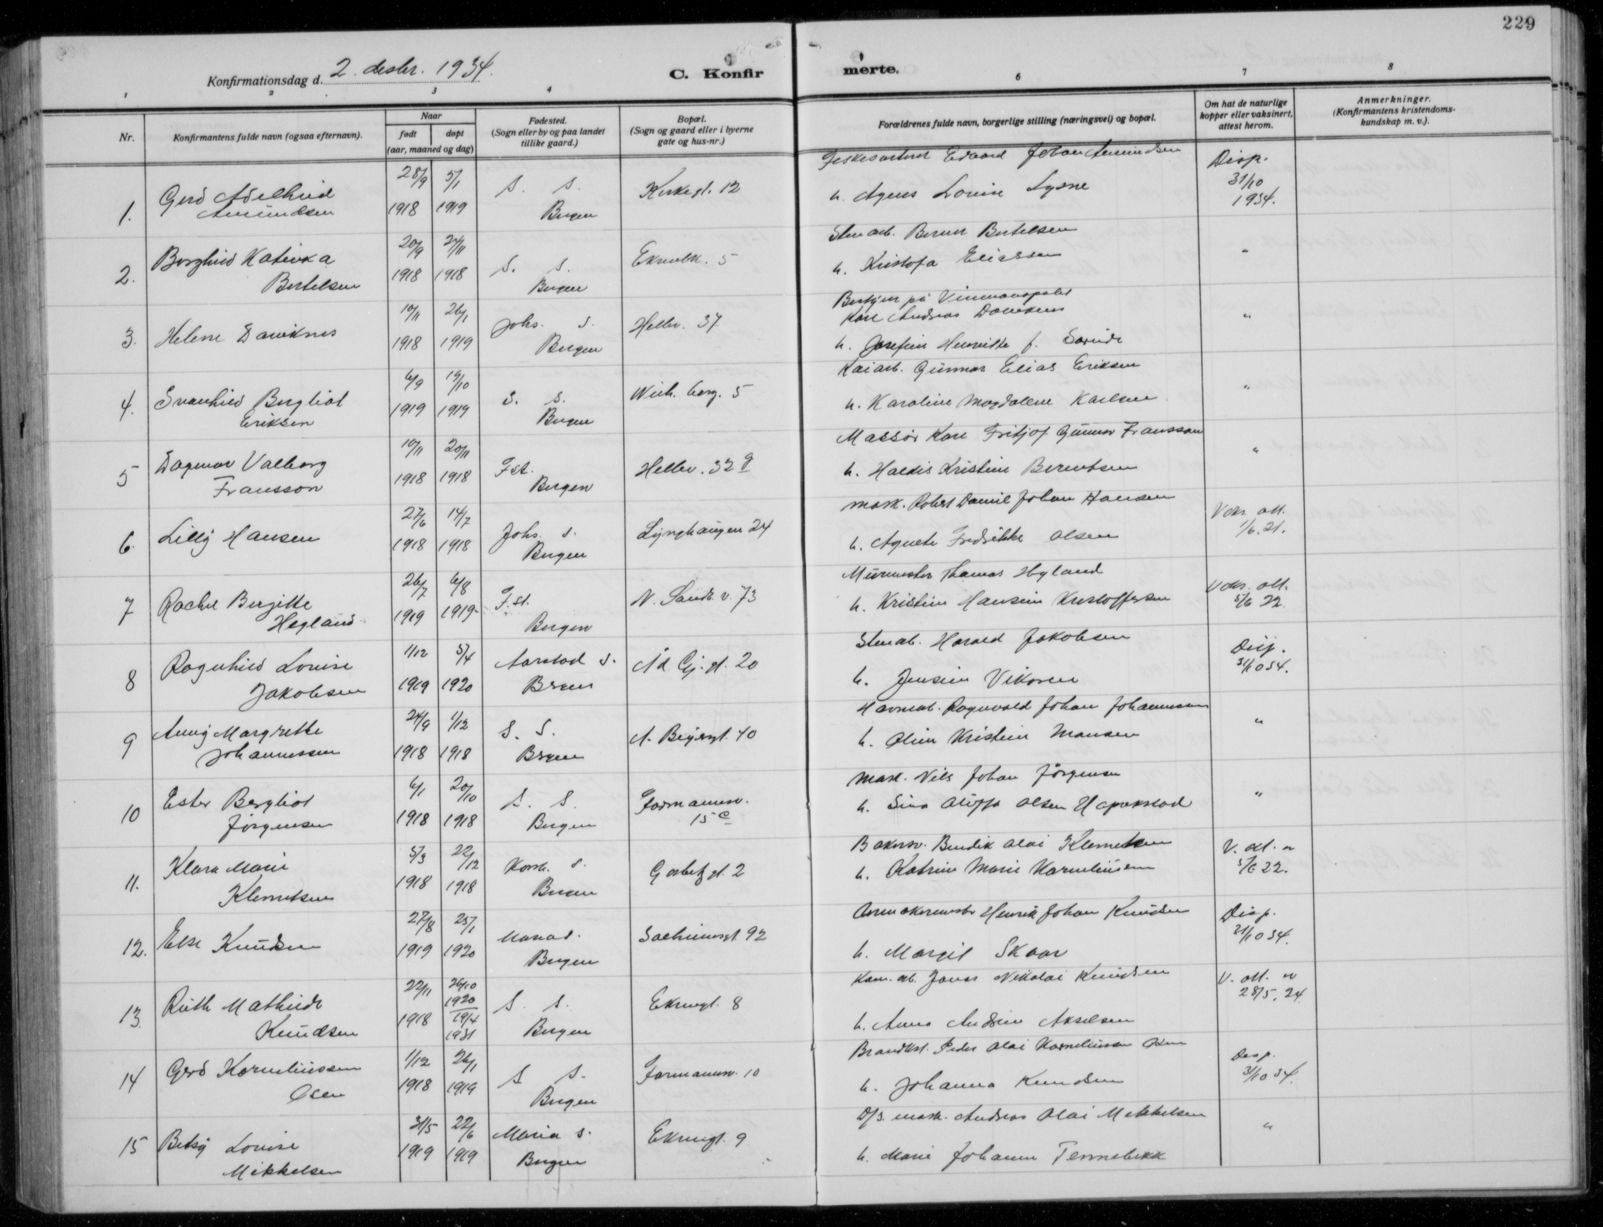 229
Konfirmationsdag d. 2. desbr. 1934.
C. Konfirmerte.
1 2 3 4 6 7 8
Nr.
Konfirmantens fulde navn (ogsaa efternavn).
Naar
født
døpt
(aar, maaned og dag)
Fødested.
(Sogn eller by og paa landet
tillike gaard.)
Bopæl.
(Sogn og gaard eller i byerne
gate og hus-nr.)
Forældrenes fulde navn, borgerlige stilling (næringsvei) og bopæl.
Om hat de naturlige
kopper eller vaksinert,
attest herom.
Anmerkninger.
(Konfirmantens kristendoms-
kundskap m. v.).
1. Gerd Adelheid Amundsen 28/9 1918 5/1 1919 S. S. Bergen Kirkegt. 12 Edvard Johan Amundsen h. Agnes Lovise Lysne Disp. 31/10 1934.
2. Borghild Katinka Bertelsen 20/9 1918 24/11 1918 S. S. Bergen 5 Bertelsen h. Kristofa Eliassen "
3. Helene 10/11 1918 26/1 1919 Johs. S. Bergen Hellev. 37 Bestyrer på Vinmonopolet Karl Andreas h. Josefine Henriette f. "
4. Svanhild Bergliot Eriksen 6/9 1919 19/10 1919 S. S. Bergen Wich. berg. 5 Kaiarb. Gunnar Elias Eriksen h. Karoline Magdalene Karlsen "
5 Dagmar Valborg Fransson 10/11 1918 20/11 1918 F.st. Bergen Hellev. 32 g Massør Karl Fritjof Gunnar Fransson h. Haldis Kristine Berentsen "
6. Lilly Hansen 27/6 1918 14/7 1918 Johs. S. Bergen Lynghaugen 24 mask. Robert Daniel Johan Hansen h. Agnete Fredrikke Olsen Vaks. att. 1/6. 21.
7 Rachel Bergitte Hegland 26/7 1919 6/8 1919 F.st. Bergen N. Sandv. v. 73 Murmester Thomas Hegland h. Kristine Hansine Kristoffersen Vaks. att. 5/6 22
8 Ragnhild Lovise Jakobsen 1/12 1919 5/4 1920 Aarstad S. Bergen 20 Harald Jakobsen h. Jensine Vikøren Disp. 31/10 34.
9 Anny Margrethe Johannessen 24/9 1918 1/12 1918 S. S. Bergen 40 Havnearb. Ragnvald Johan Johannessen h. Oline Kristine Monsen "
10 Ester Bergliot Jørgensen 6/1 1918 20/10 1918 S. S. Bergen Formannsv. 15 c Mask. Nils Johan Jørgensen h. Olsen "
11. Klara Marie Klemetsen 5/3 1918 22/12 1918 Korsk. S. Bergen 2 Bendik Olai Klemetsen h. Katrine Marie Korneliussen V. att. 5/6 22.
12. Else Knudsen 27/8 1919 25/1 1920 Maria S. Bergen 92 Henrik Johan Knudsen h. Margit Skaar Disp. 31/10 34.
13. Ruth Mathilde Knudsen 22/11 1918 26/10 1920 19/4 1931 S. S. Bergen Ekrengt. 8 Jonas Nikolai Knudsen h. Anna Andrea Akselsen V. att. 28/5. 24
14 Gerd Korneliussen Osen 1/12 1918 26/1 1919 S S. Bergen Formannsv. 10 Peder Olai Korneliussen Osen h. Johanna Knudsen Disp. 31/10 34.
15 Betsy Lovise Mikkelsen 31/5 1919 22/6 1919 Maria S. Bergen Ekrengt. 9 D/S. mask. Andreas Olai Mikkelsen h. Marie Johanne Tennebekk "